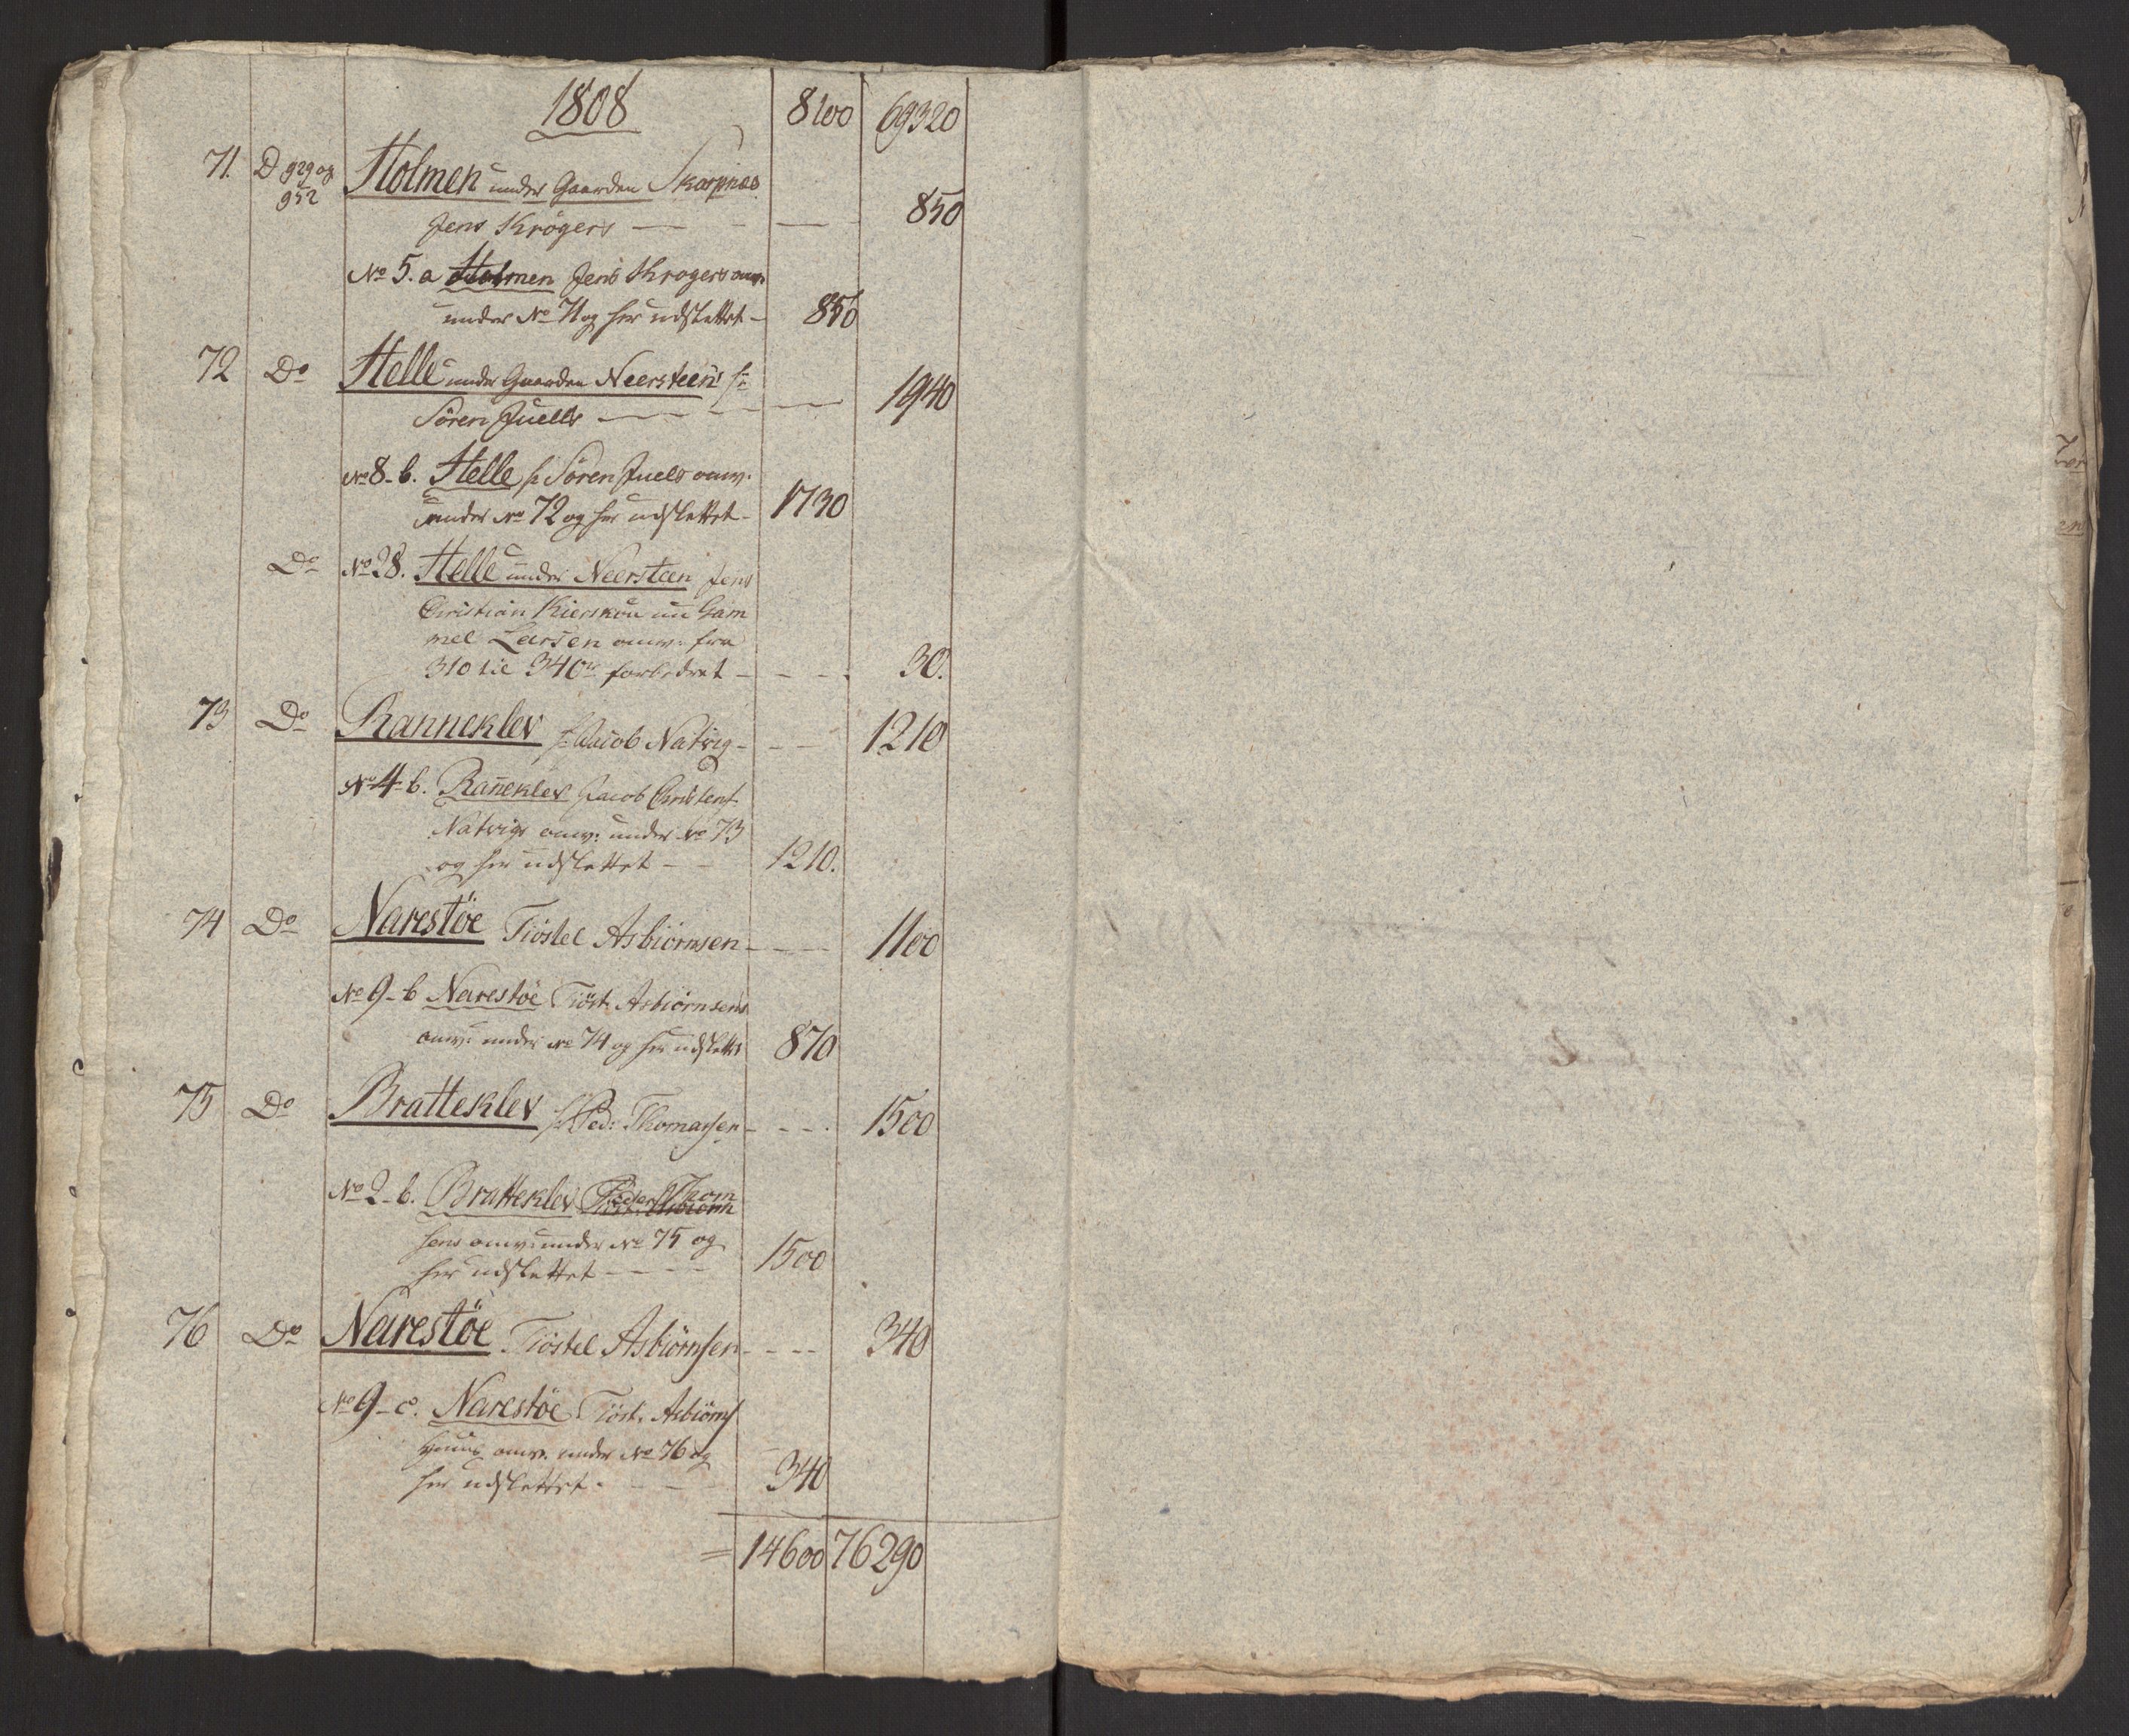 1808 8100 69320
71. D 929 og Holmen under Gaarden Skarpnæs
952
Jens Krøgers — — — 850
No 5. a Holmen Jens Krogers anv.
under No 71 og her udslettet — 850
72 Do Helle under Gaarden Neersteen
Sören Juells — — — 1940
No 8-b. Helle Sören Juels anv.
under No 72 og her udslettet — 1730
Do No 28. Helle under Neersteen Jens
Christian Kierskou nu Gam
mel Larsen anv. fra
310 til 340 forbedret — — — 30.
73 Do Ranneklev Jacob Natvig — — — 1210
No 4-b. Rañeklev Jacob Christens.
Natvigs anv: under No 73
og her udslettet — — 1210.
74 Do Narestöe Tiöstel Asbiörnsen — — — 1100
No 9-b Narestöe Tiöst. Asbiörnsens
anv: under No 74 og her udslettet 870
75 Do Bratteklev Ped: Thomassen — — — 1500
No 2-b. Bratteklev Peder Thom
sens anv: under No 75 og
her udslettet — — — 1500
76 Do Narestöe Tiöstel Asbiörnsen — — — 340
No 9-c. Narestöe Tiöst. Asbiörns
anv. under No 76 og
her udslettet — — — 340
= 14600 76290